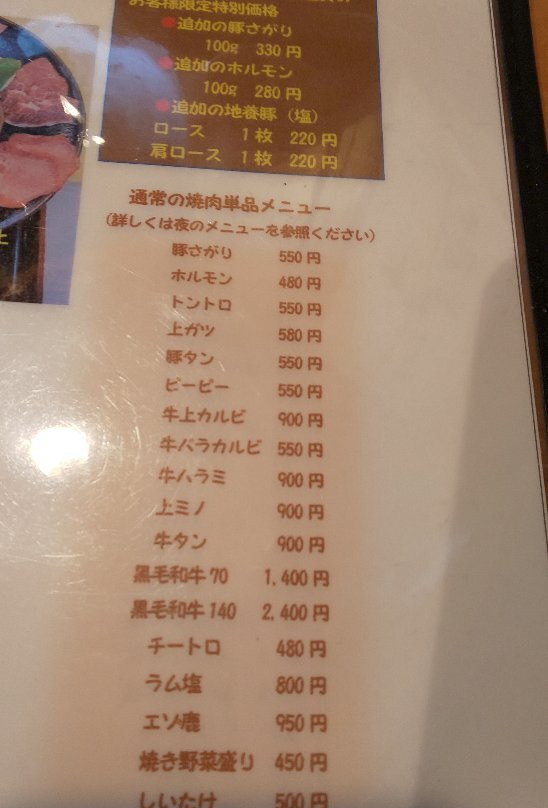 お客様限定特別価格
●追加の豚さがり
100g 330円
●追加のホルモン
100g 280円
●追加の地養豚（塩）
ロース 1枚 220円
肩ロース 1枚 220円
通常の焼肉単品メニュー
（詳しくは夜のメニューを参照ください）
豚さがり 550円
ホルモン 480円
トントロ 550円
上ガツ 580円
豚タン 550円
ピーピー 550円
牛上カルビ 900円
牛バラカルビ 550円
牛ハラミ 900円
上ミノ 900円
牛タン 900円
黒毛和牛70 1,400円
黒毛和牛140 2,400円
チートロ 480円
ラム塩 800円
エゾ鹿 950円
焼き野菜盛り 450円
しいたけ 500円